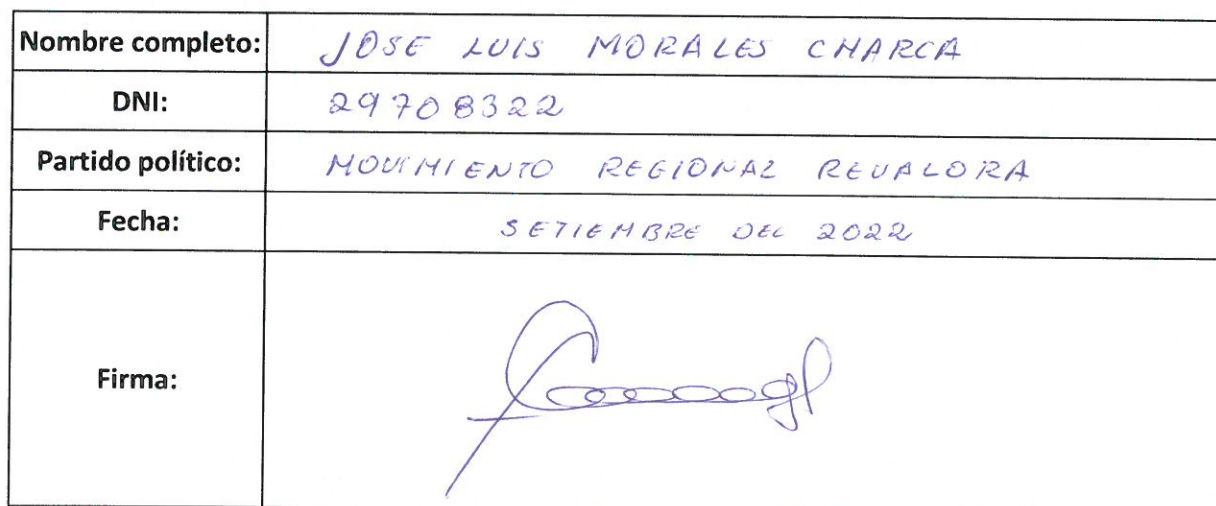 Nombre completo: JOSE LUIS MORALES CHARCA
DNI: 29708322
Partido político: MOVIMIENTO REGIONAL REVALORA
Fecha: SETIEMBRE DEL 2022
Firma: